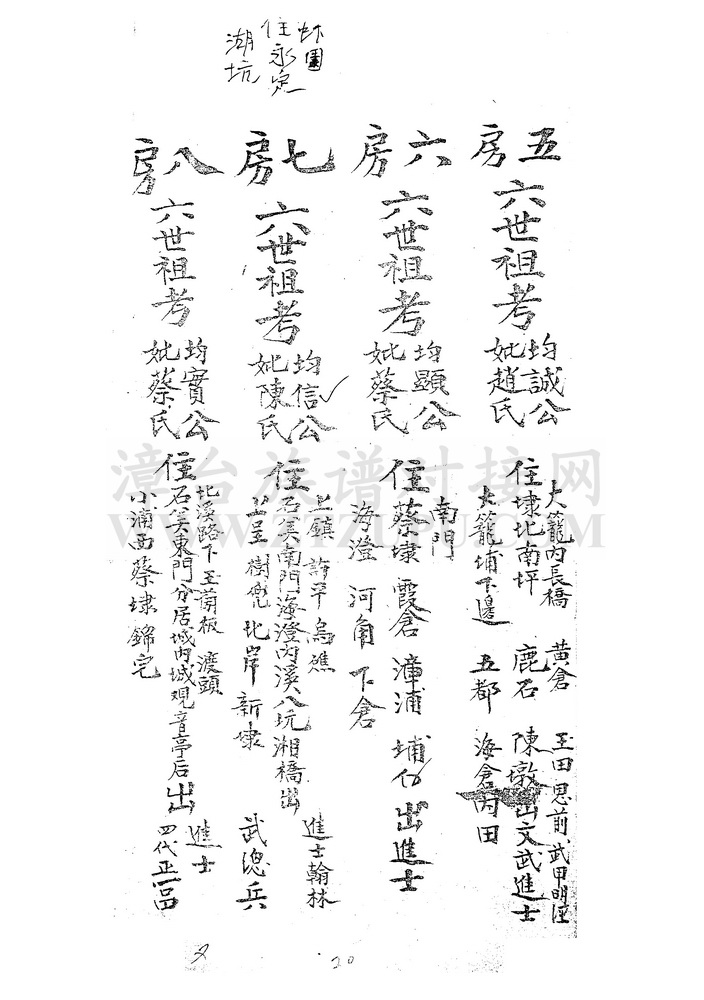 住永定
湖坑
五房
六世祖考
均誠公
妣趙氏
大籠内長橋 黄倉
住埭北南坪 鹿石 陳墩出文武進士
大籠埔下邊 五都 海倉丙田
王田思前武甲明
六房
六世祖考
均顯公
妣蔡氏
南門
住蔡埭 霞倉 漳浦 埔 出進士
海澄 河角 下倉
七房
六世祖考
均信公
妣陳氏
上鎮 許平 烏礁 進士翰林
住石美南門海澄内溪八坑湘橋出
豈 樹兜 北岸 新埭 武總兵
八房
六世祖考
均實公
妣蔡氏
北溪路下王前板 渡頭 進士
住石美東門分居城内城观音亭后出
小浦西蔡埭錦宅 四代正一品
漳台族谱对接网
WWW.ZTZUPU.COM
20